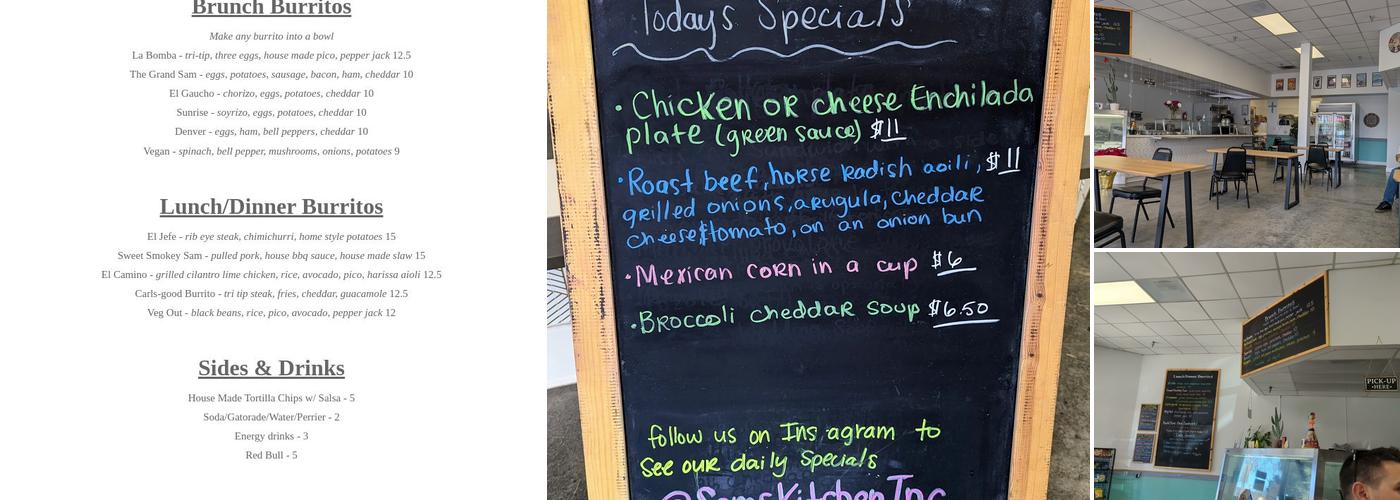 Brunch Burritos
Make any burrito into a bowl
La Bomba - tri-tip, three eggs, house made pico, pepper jack 12.5
The Grand Sam - eggs, potatoes, sausage, bacon, ham, cheddar 10
El Gaucho - chorizo, eggs, potatoes, cheddar 10
Sunrise - soyrizo, eggs, potatoes, cheddar 10
Denver - eggs, ham, bell peppers, cheddar 10
Vegan - spinach, bell pepper, mushrooms, onions, potatoes 9
Lunch/Dinner Burritos
El Jefe - rib eye steak, chimichurri, home style potatoes 15
Sweet Smokey Sam - pulled pork, house bbq sauce, house made slaw 15
El Camino - grilled cilantro lime chicken, rice, avocado, pico, harissa aioli 12.5
Carls-good Burrito - tri tip steak, fries, cheddar, guacamole 12.5
Veg Out - black beans, rice, pico, avocado, pepper jack 12
Sides & Drinks
House Made Tortilla Chips w/ Salsa - 5
Soda/Gatorade/Water/Perrier - 2
Energy drinks - 3
Red Bull - 5
Todays Specials
• Chicken OR cheese Enchilada
plate (green sauce) $11
• Roast beef, horse Radish aoili, $11
grilled onions, arugula, cheddar
cheese $ tomato, on an onion bun
• Mexican corn in a cup $6
• Broccoli cheddar soup $6.50
follow us on Ins agram to
See our daily Specials
@SamsKitchenInc
Brunch Burritos
Lunch/Dinner Burritos
PICK-UP
HERE